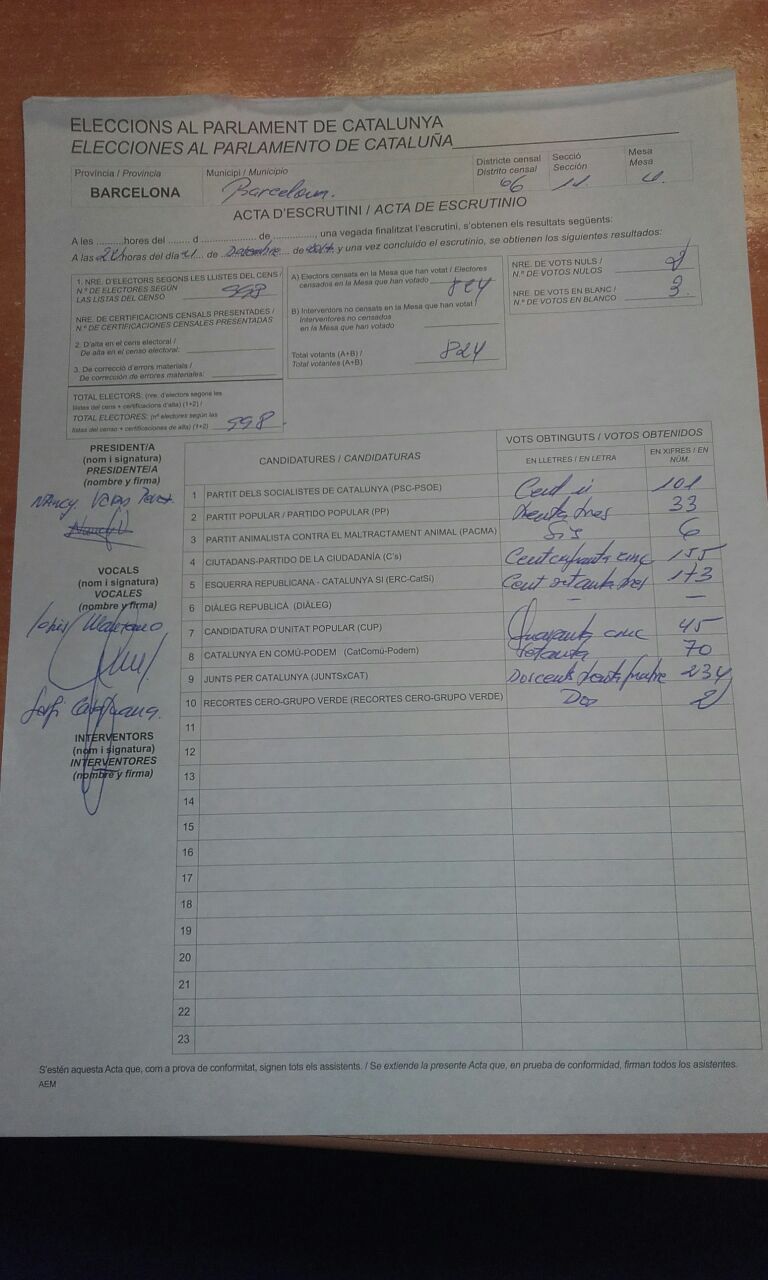 ELECCIONS AL PARLAMENT DE CATALUNYA
ELECCIONES AL PARLAMENTO DE CATALUÑA
Província / Provincia
BARCELONA
Municipi / Municipio
Barcelona.
Districte censal
Distrito censal
06
Secció
Sección
11
Mesa
Mesa
U.
ACTA D'ESCRUTINI / ACTA DE ESCRUTINIO
A les ........hores del ....... d .................... de .............., una vegada finalitzat l'escrutini, s'obtenen els resultats següents:
A las 22 horas del día 21 de Desembre de 2017 y una vez concluido el escrutinio, se obtienen los siguientes resultados:
1. NRE. D'ELECTORS SEGONS LES LLISTES DEL CENS /
N.º DE ELECTORES SEGÚN
LAS LISTAS DEL CENSO 998
NRE. DE CERTIFICACIONS CENSALS PRESENTADES /
N.º DE CERTIFICACIONES CENSALES PRESENTADAS
2. D'alta en el cens electoral /
De alta en el censo electoral:
3. De correcció d'errors materials /
De corrección de errores materiales:
TOTAL ELECTORS: (nre. d'electors segons les
llistes del cens + certificacions d'alta) (1+2) /
TOTAL ELECTORES: (nº electores según las
listas del censo + certificaciones de alta) (1+2) 998.
A) Electors censats en la Mesa que han votat / Electores
censados en la Mesa que han votado 824
B) Interventors no censats en la Mesa que han votat /
Interventores no censados
en la Mesa que han votado
Total votants (A+B) /
Total votantes (A+B) 824
NRE. DE VOTS NULS /
N.º DE VOTOS NULOS
NRE. DE VOTS EN BLANC /
N.º DE VOTOS EN BLANCO 3.
PRESIDENT/A
(nom i signatura)
PRESIDENTE/A
(nombre y firma)
Nancy
VOCALS
(nom i signatura)
VOCALES
(nombre y firma)
INTERVENTORS
(nom i signatura)
INTERVENTORES
(nombre y firma)
CANDIDATURES / CANDIDATURAS
VOTS OBTINGUTS / VOTOS OBTENIDOS
EN LLETRES / EN LETRA
EN XIFRES / EN NÚM.
1 PARTIT DELS SOCIALISTES DE CATALUNYA (PSC-PSOE) Cent u 101
2 PARTIT POPULAR / PARTIDO POPULAR (PP) trenta tres 33
3 PARTIT ANIMALISTA CONTRA EL MALTRACTAMENT ANIMAL (PACMA) Sis 6
4 CIUTADANS-PARTIDO DE LA CIUDADANÍA (C's) Cent cinquanta cinc 155
5 ESQUERRA REPUBLICANA - CATALUNYA SÍ (ERC-CatSí) Cent setanta tres 173
6 DIÀLEG REPUBLICÀ (DIÀLEG) — —
7 CANDIDATURA D'UNITAT POPULAR (CUP) Quaranta cinc 45
8 CATALUNYA EN COMÚ-PODEM (CatComú-Podem) Setanta 70
9 JUNTS PER CATALUNYA (JUNTSxCAT) Doscents trenta quatre 234
10 RECORTES CERO-GRUPO VERDE (RECORTES CERO-GRUPO VERDE) Dos 2
11
12
13
14
15
16
17
18
19
20
21
22
23
S'estén aquesta Acta que, com a prova de conformitat, signen tots els assistents. / Se extiende la presente Acta que, en prueba de conformidad, firman todos los asistentes.
AEM